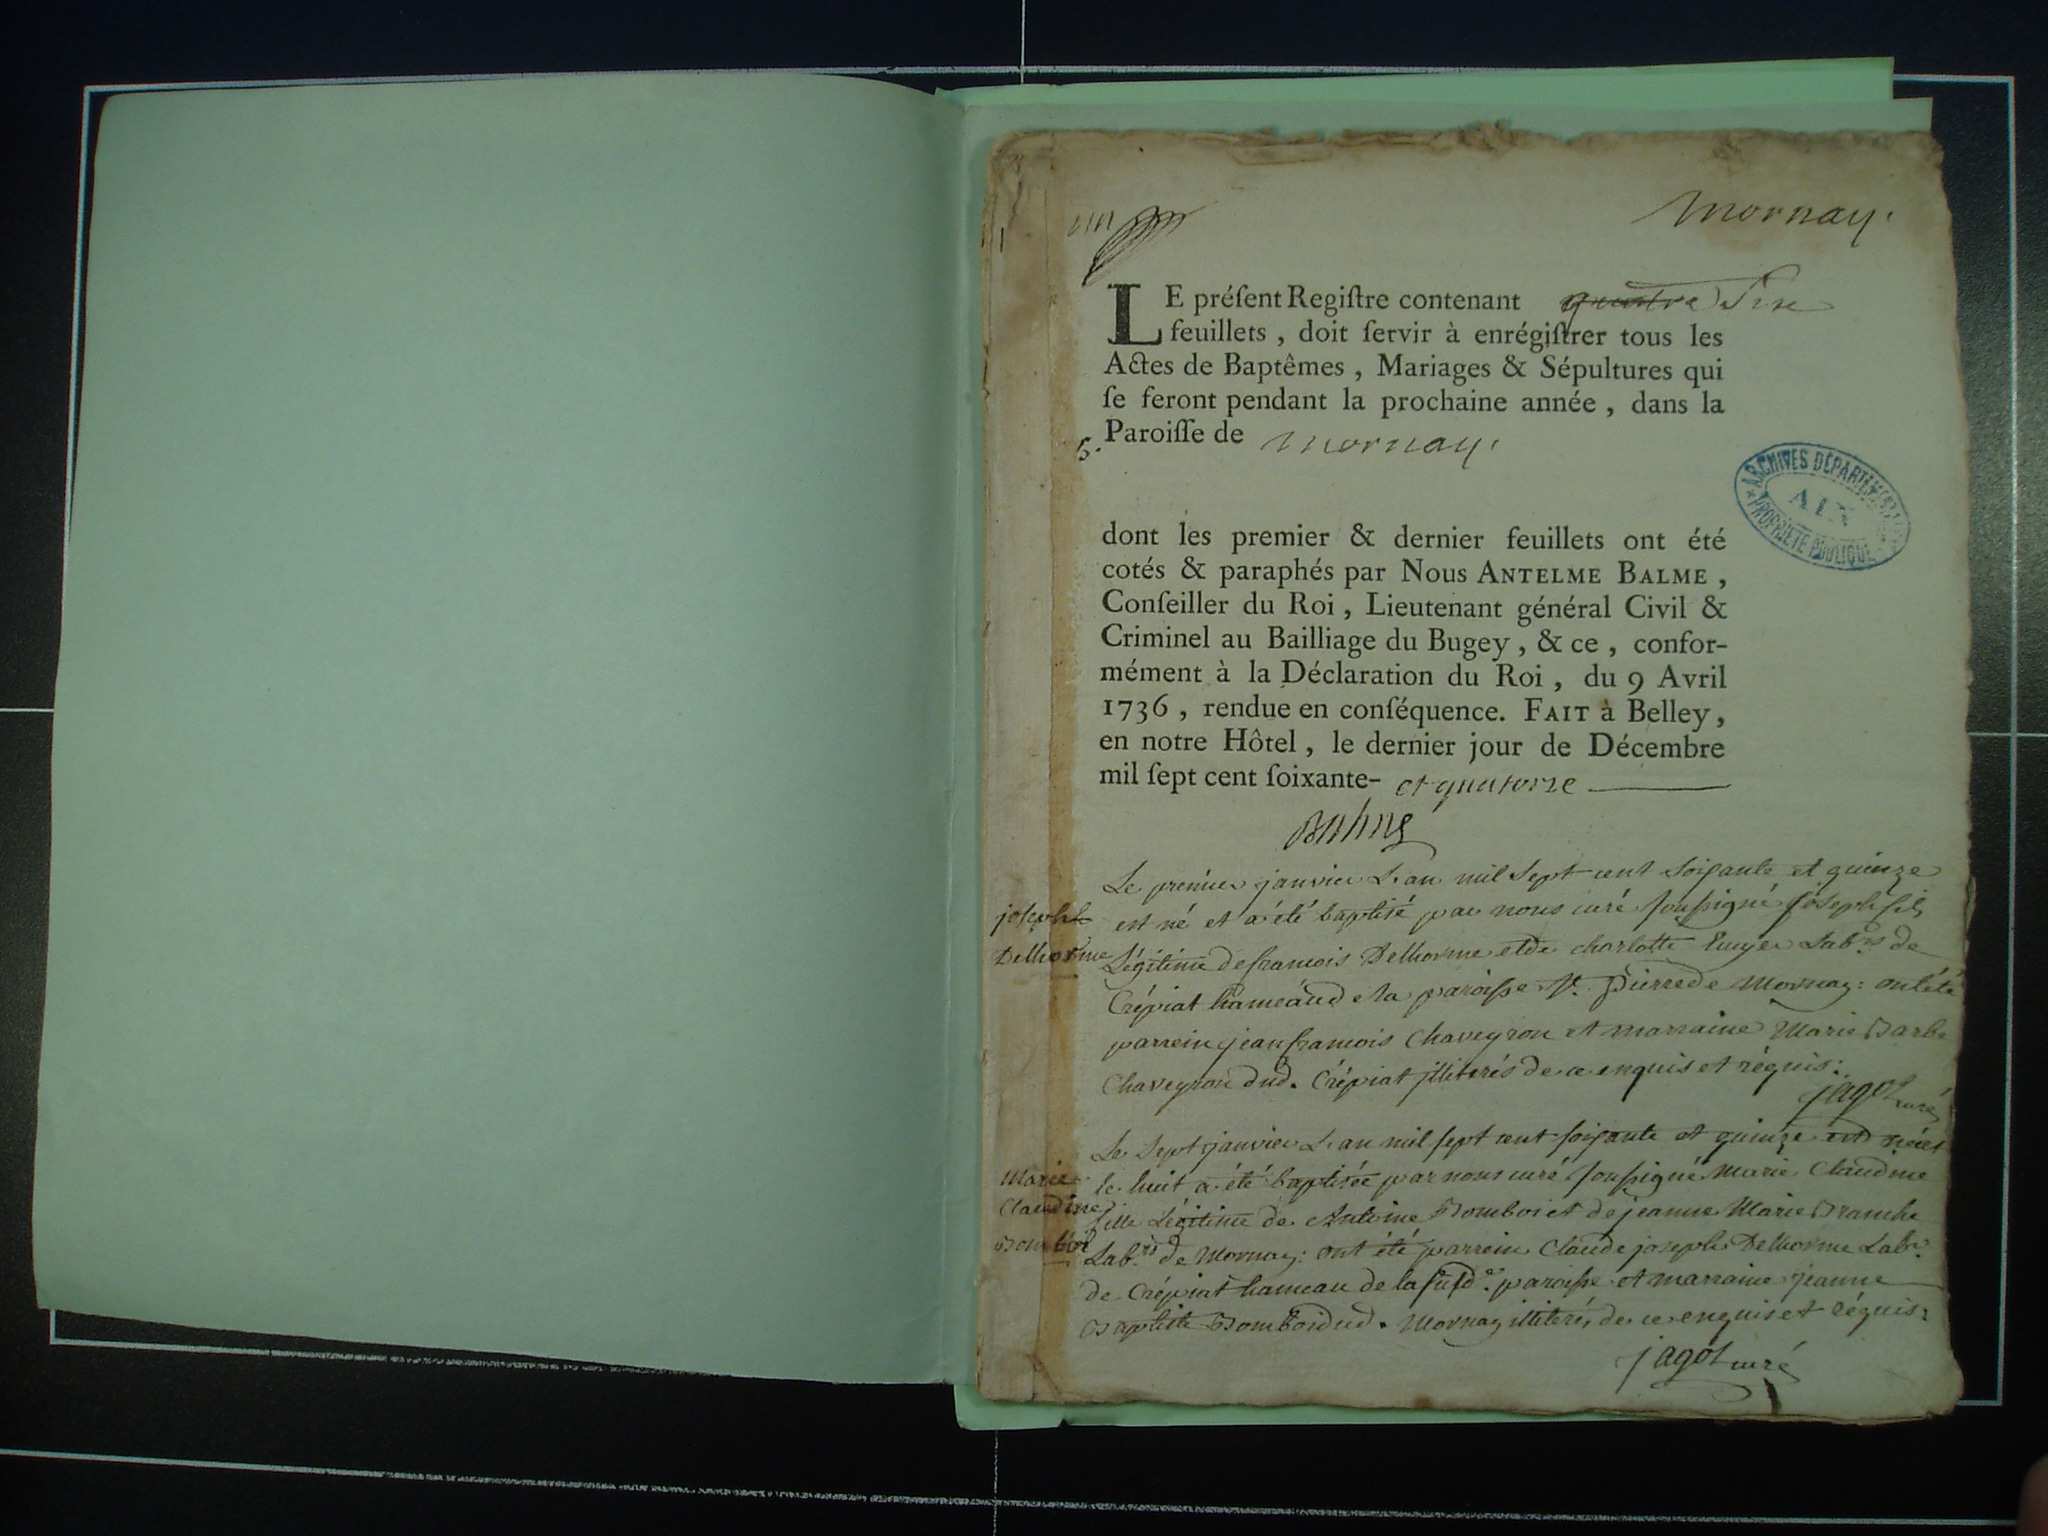 Mornay.
LE préſent Regiſtre contenant quatre Six
feuillets, doit ſervir à enrégiſtrer tous les
Actes de Baptêmes, Mariages & Sépultures qui
ſe feront pendant la prochaine année, dans la
Paroiſſe de Mornay.
dont les premier & dernier feuillets ont été
cotés & paraphés par Nous ANTELME BALME,
Conſeiller du Roi, Lieutenant général Civil &
Criminel au Bailliage du Bugey, & ce, confor-
mément à la Déclaration du Roi, du 9 Avril
1736, rendue en conſéquence. FAIT à Belley,
en notre Hôtel, le dernier jour de Décembre
mil ſept cent ſoixante- et quatorze
Balme
ARCHIVES DÉPARTEMENTALES
AIN
PROPRIÉTÉ PUBLIQUE
joseph
Delhorme
Le premier janvier L'an mil Sept cent Soixante et quinze
est né et a été baptisé par nous curé soussigné joseph fils
Légitime de francois Delhorme et de charlotte Lab.rs de
Crépiat hameau de la paroisse St. Pierre de Mornay: ont été
parrein jean francois Chaveyron et marraine Marie Barbe
Chaveyron dud. Crépiat illiterés de ce enquis et réquis.
jagot curé
Marie
Claudine
Bomboi
Le Sept janvier L'an mil sept cent soixante et quinze est née et
le huit a été baptisée par nous curé soussigné Marie Claudine
fille Légitime de Antoine Bomboi et de jeanne Marie Branche
Lab.rs de Mornay: ont été parrein Claude joseph Delhorme Lab.r
de Crépiat hameau de la susd.e paroisse et marraine jeanne
Baptiste Bomboi dud. Mornay illiterés de ce enquis et réquis.
jagot curé